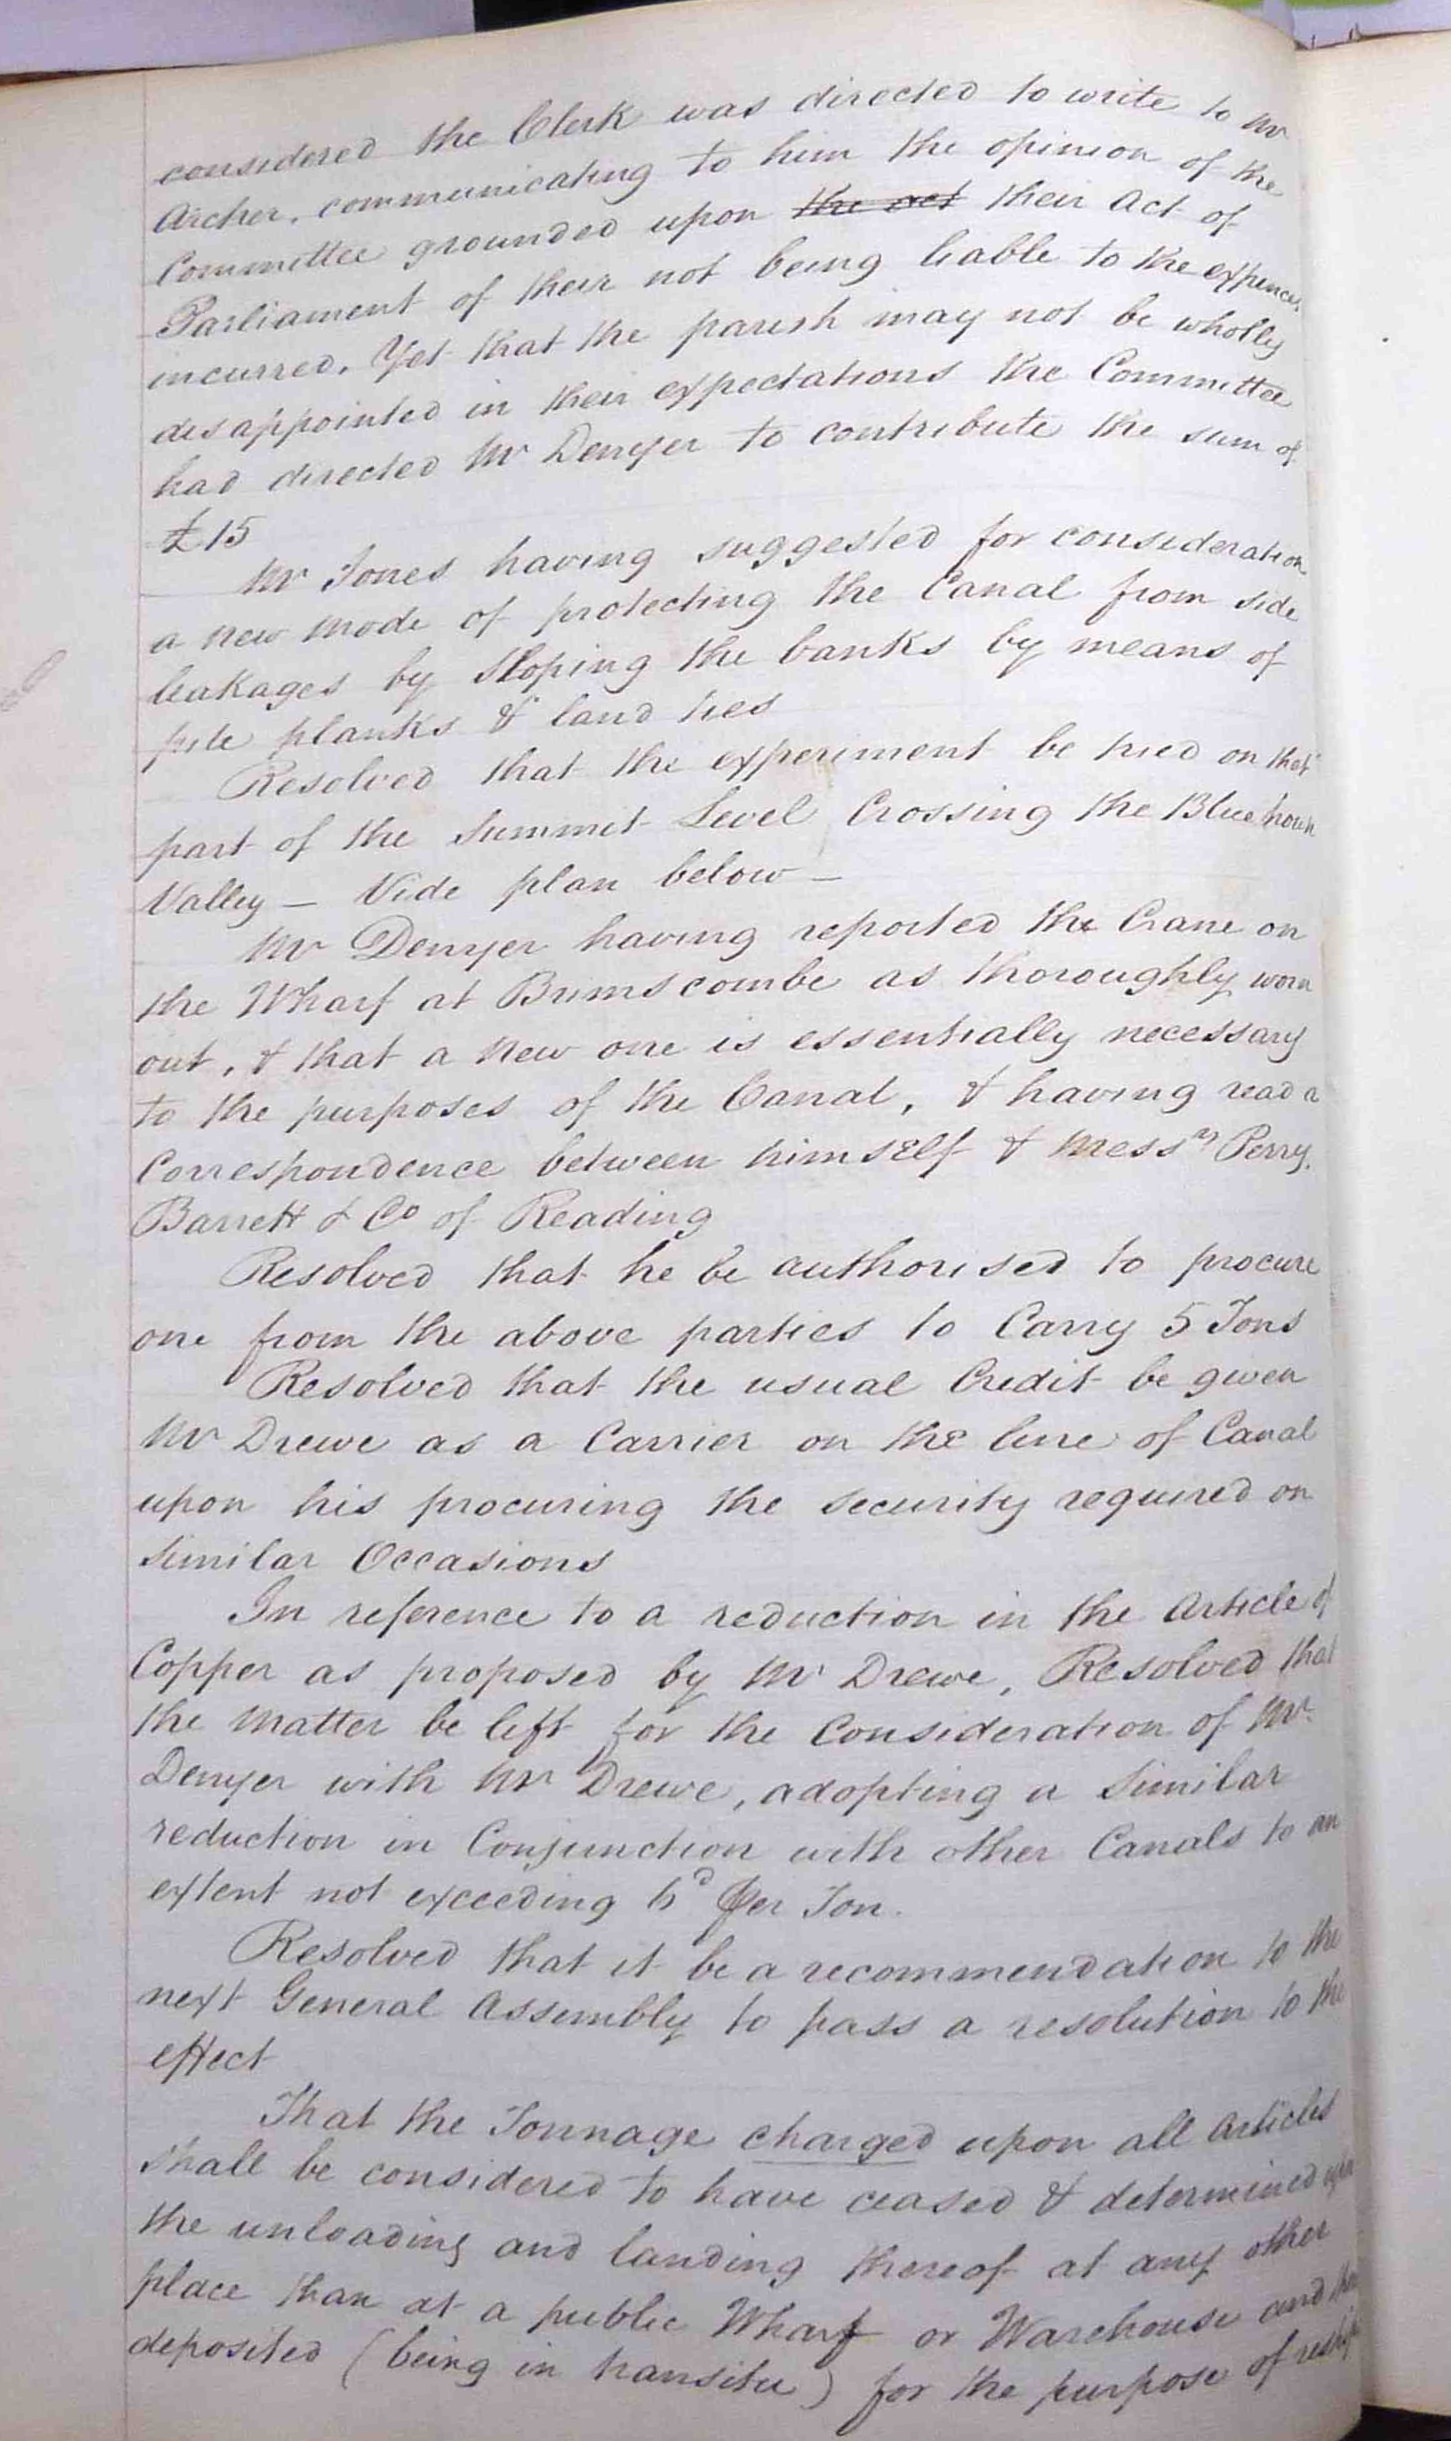 considered the Clerk was directed to write to Mr
Archer, communicating to him the opinion of the
Committee grounded upon the act their Act of
Parliament of their not being liable to the expences
incurred. Yet that the parish may not be wholly
disappointed in their expectations the Committee
had directed Mr Denyer to contribute the sum of
£15
Mr Jones having suggested for consideration
a new mode of protecting the Canal from side
leakages by Sloping the banks by means of
pile planks & land ties
Resolved that the experiment be tried on that
part of the Summit Level Crossing the Bluehouse
Valley — Vide plan below —
Mr Denyer having reported the Crane on
the Wharf at Brimscombe as thoroughly worn
out, & that a new one is essentially necessary
to the purposes of the Canal, & having read a
Correspondence between himself & Messrs Perry,
Barrett & Co of Reading
Resolved that he be authorised to procure
one from the above parties to Carry 5 Tons
Resolved that the usual Credit be given
Mr Drewe as a Carrier on the line of Canal
upon his procuring the security required on
Similar Occasions
In reference to a reduction in the Article of
Copper as proposed by Mr Drewe, Resolved that
the Matter be left for the Consideration of Mr
Denyer with Mr Drewe, adopting a Similar
reduction in Conjunction with other Canals to an
extent not exceeding 6d per Ton.
Resolved that it be a recommendation to the
next General Assembly to pass a resolution to the
effect
That the Tonnage charged upon all Articles
shall be considered to have ceased & determined upon
the unloading and landing thereof at any other
place than at a public Wharf or Warehouse and
deposited (being in transitu) for the purpose of